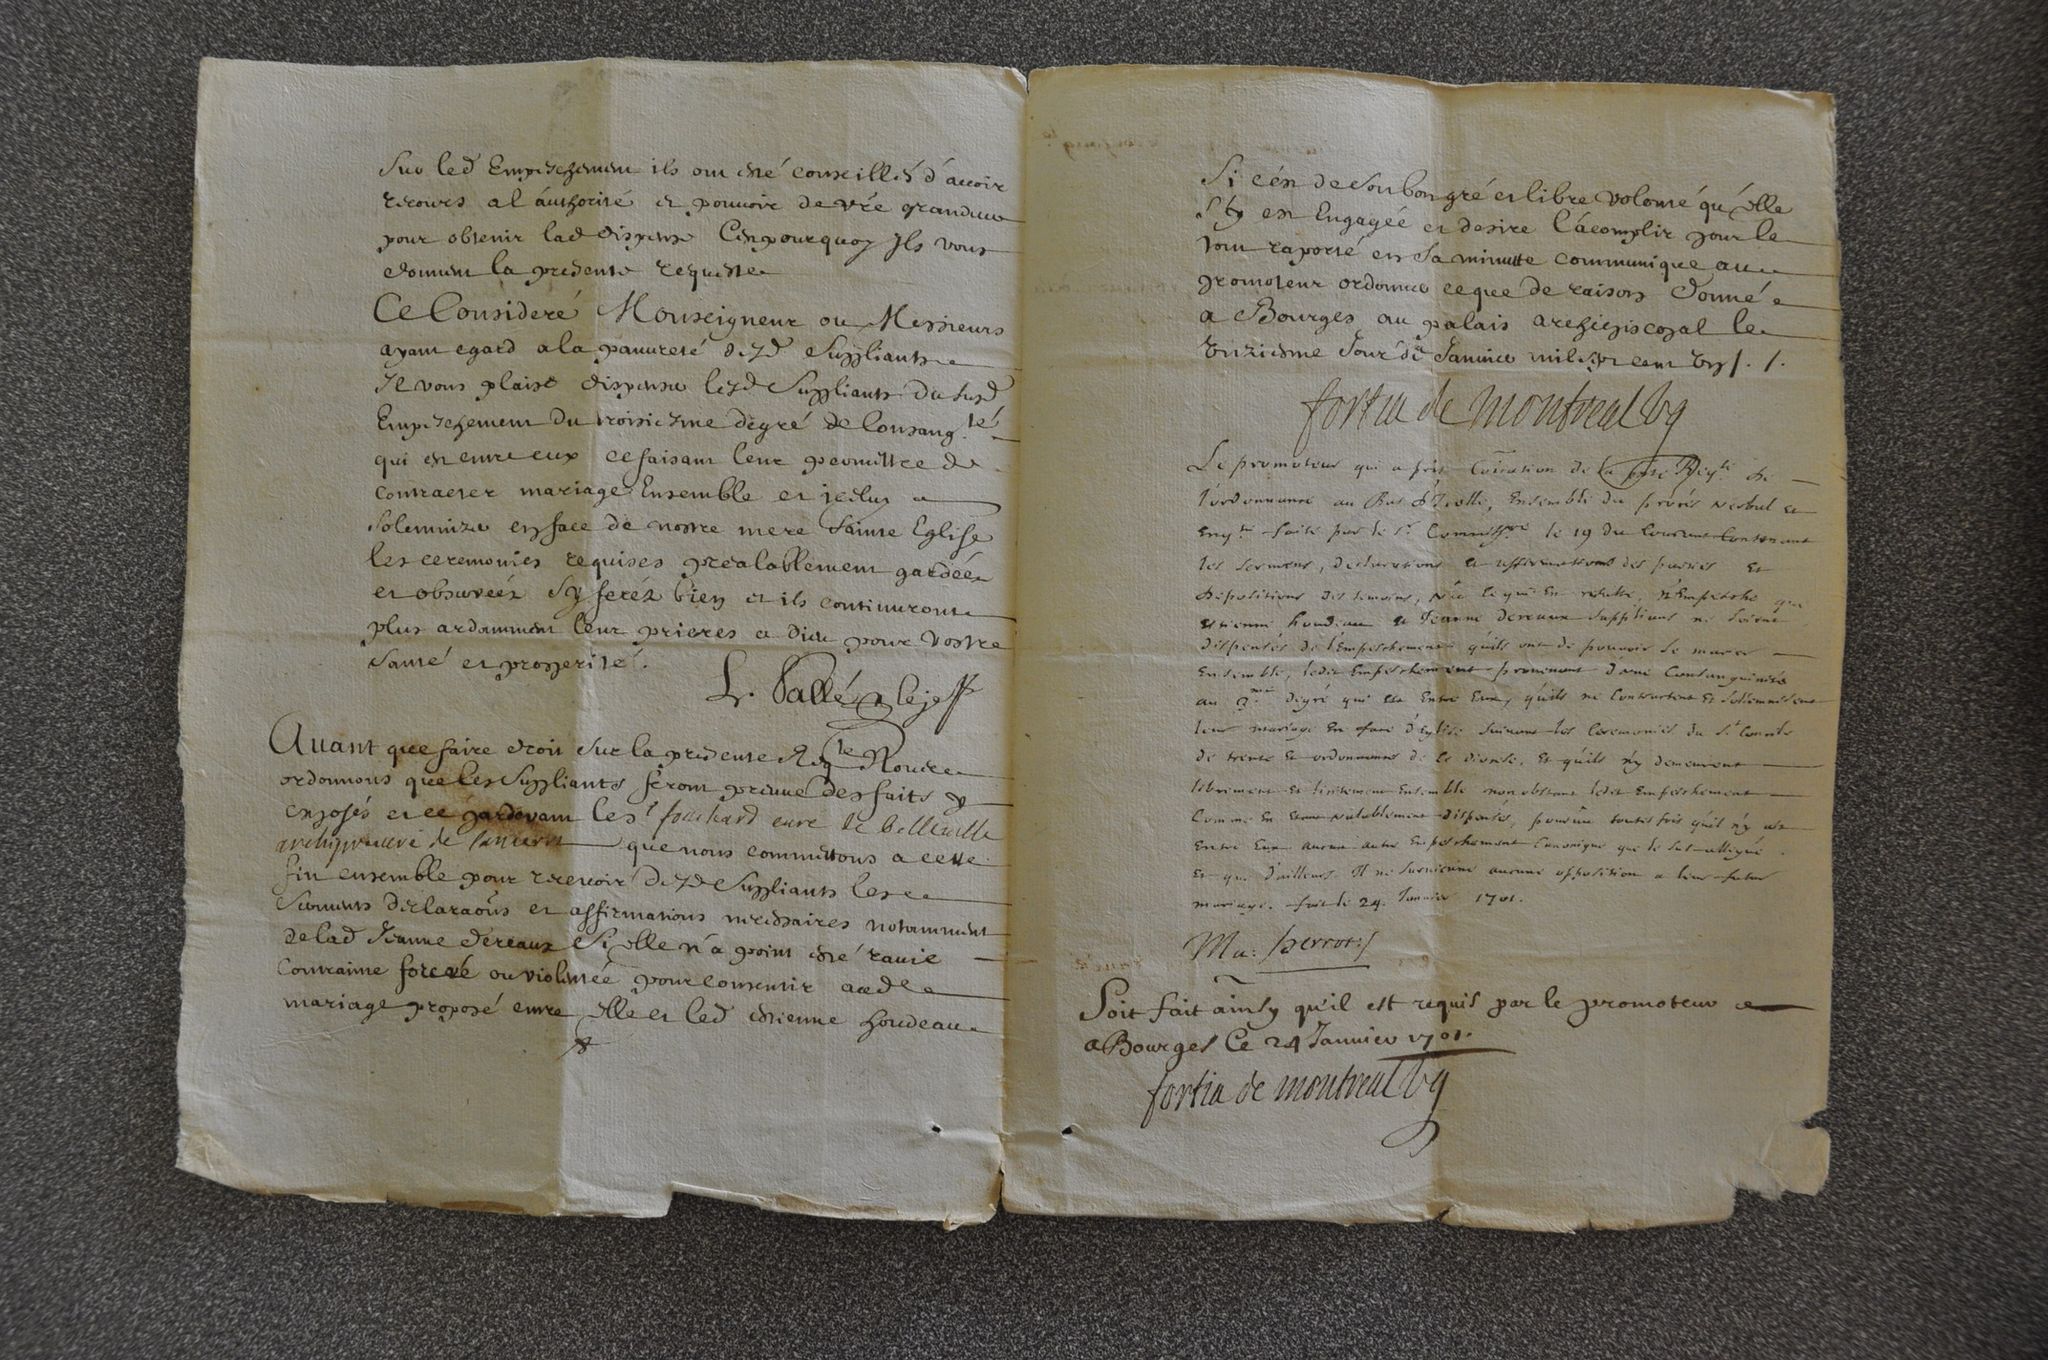 Sur led Empeschement ils ont esté conseillés d'avoir
recours a l'authorité et pouvoir de vre grandeur
pour obtenir lad dispense C'est pourquoy Ils vous
donnent la presente requeste
Ce Consideré Monseigneur ou Messieurs
ayant egard a la pauvreté desd Suppliants
Il vous plaise dispenser lesd Suppliants du susd
Empeschement du troisiesme degré de Consang.té
qui est entre eux ce faisant leur permettre de
contracter mariage Ensemble et iceluy
solemnizer en face de nostre mere Sainte Eglise
les ceremonies requises prealablement gardées
et observées Sy ferés bien et ils continueront
plus ardamment leur prieres a dieu pour vostre
santé et prosperité.
L. Vallé
Avant que faire droit sur la presente Reqte Nous
ordonnons que les Suppliants feront preuve des faits y
exposés et ce pardevant le sr fouchard curé de belleville
archiprevere de sancerre que nous committons a cette
fin ensemble pour recevoir desd Suppliants les
serments declaraõns et affirmations necessaires notamment
de lad Jeanne dereaux Si elle n'a point esté ravie
contrainte forcée ou violentée pour consentir aud
mariage proposé entre elle et led estienne houdeau
Si c'est de son bon gré et libre volonté qu'elle
s'y est Engagée et desire l'acomplir pour le
tout raporté en la minutte communique au
promoteur ordonner ce que de raison Donné
a Bourges au palais archiepiscopal le
Jour de Janvier mil sept cent
fortia de montreal vg
Le promoteur qui a pris Coïcation de la pnte Reqte de
l'ordonnance au Bas d'Icelle, Ensemble du procés verbal et
Enqte faite par le sr Commissre le 19 du Courant Contenant
les sermens, declarations et affirmations des parties et
depositions des temoins, veu ce qui En resulte, n'Empesche que
estienne houdeau et Jeanne dereaux supplians ne soient
dispensés de l'Empeschement qu'ils ont de pouvoir se marier
Ensemble, ledit Empeschement provenant d'une Consanguinité
au 3me degré qui est Entre Eux, qu'ils ne Contractent et sollemnisent
leur mariage En face d'Eglise suivant les Ceremonies du St Concile
de trente et ordonnances de ce diocese, Et qu'ils n'y demeurent
librement et licitement Ensemble nonobstant ledit Empeschement
Comme En Etant valablement dispensés, pourveu toutesfois qu'il n'y ait
Entre Eux aucun autre Empeschement Canonique que le susallegué
Et que d'ailleurs Il ne survienne aucune opposition a leur futur
mariage. fait le 24. Janvier 1701.
Ma: perrot
Soit fait ainsy qu'il est requis par le promoteur
a Bourges Ce 24 Janvier 1701.
fortia de montreal vg